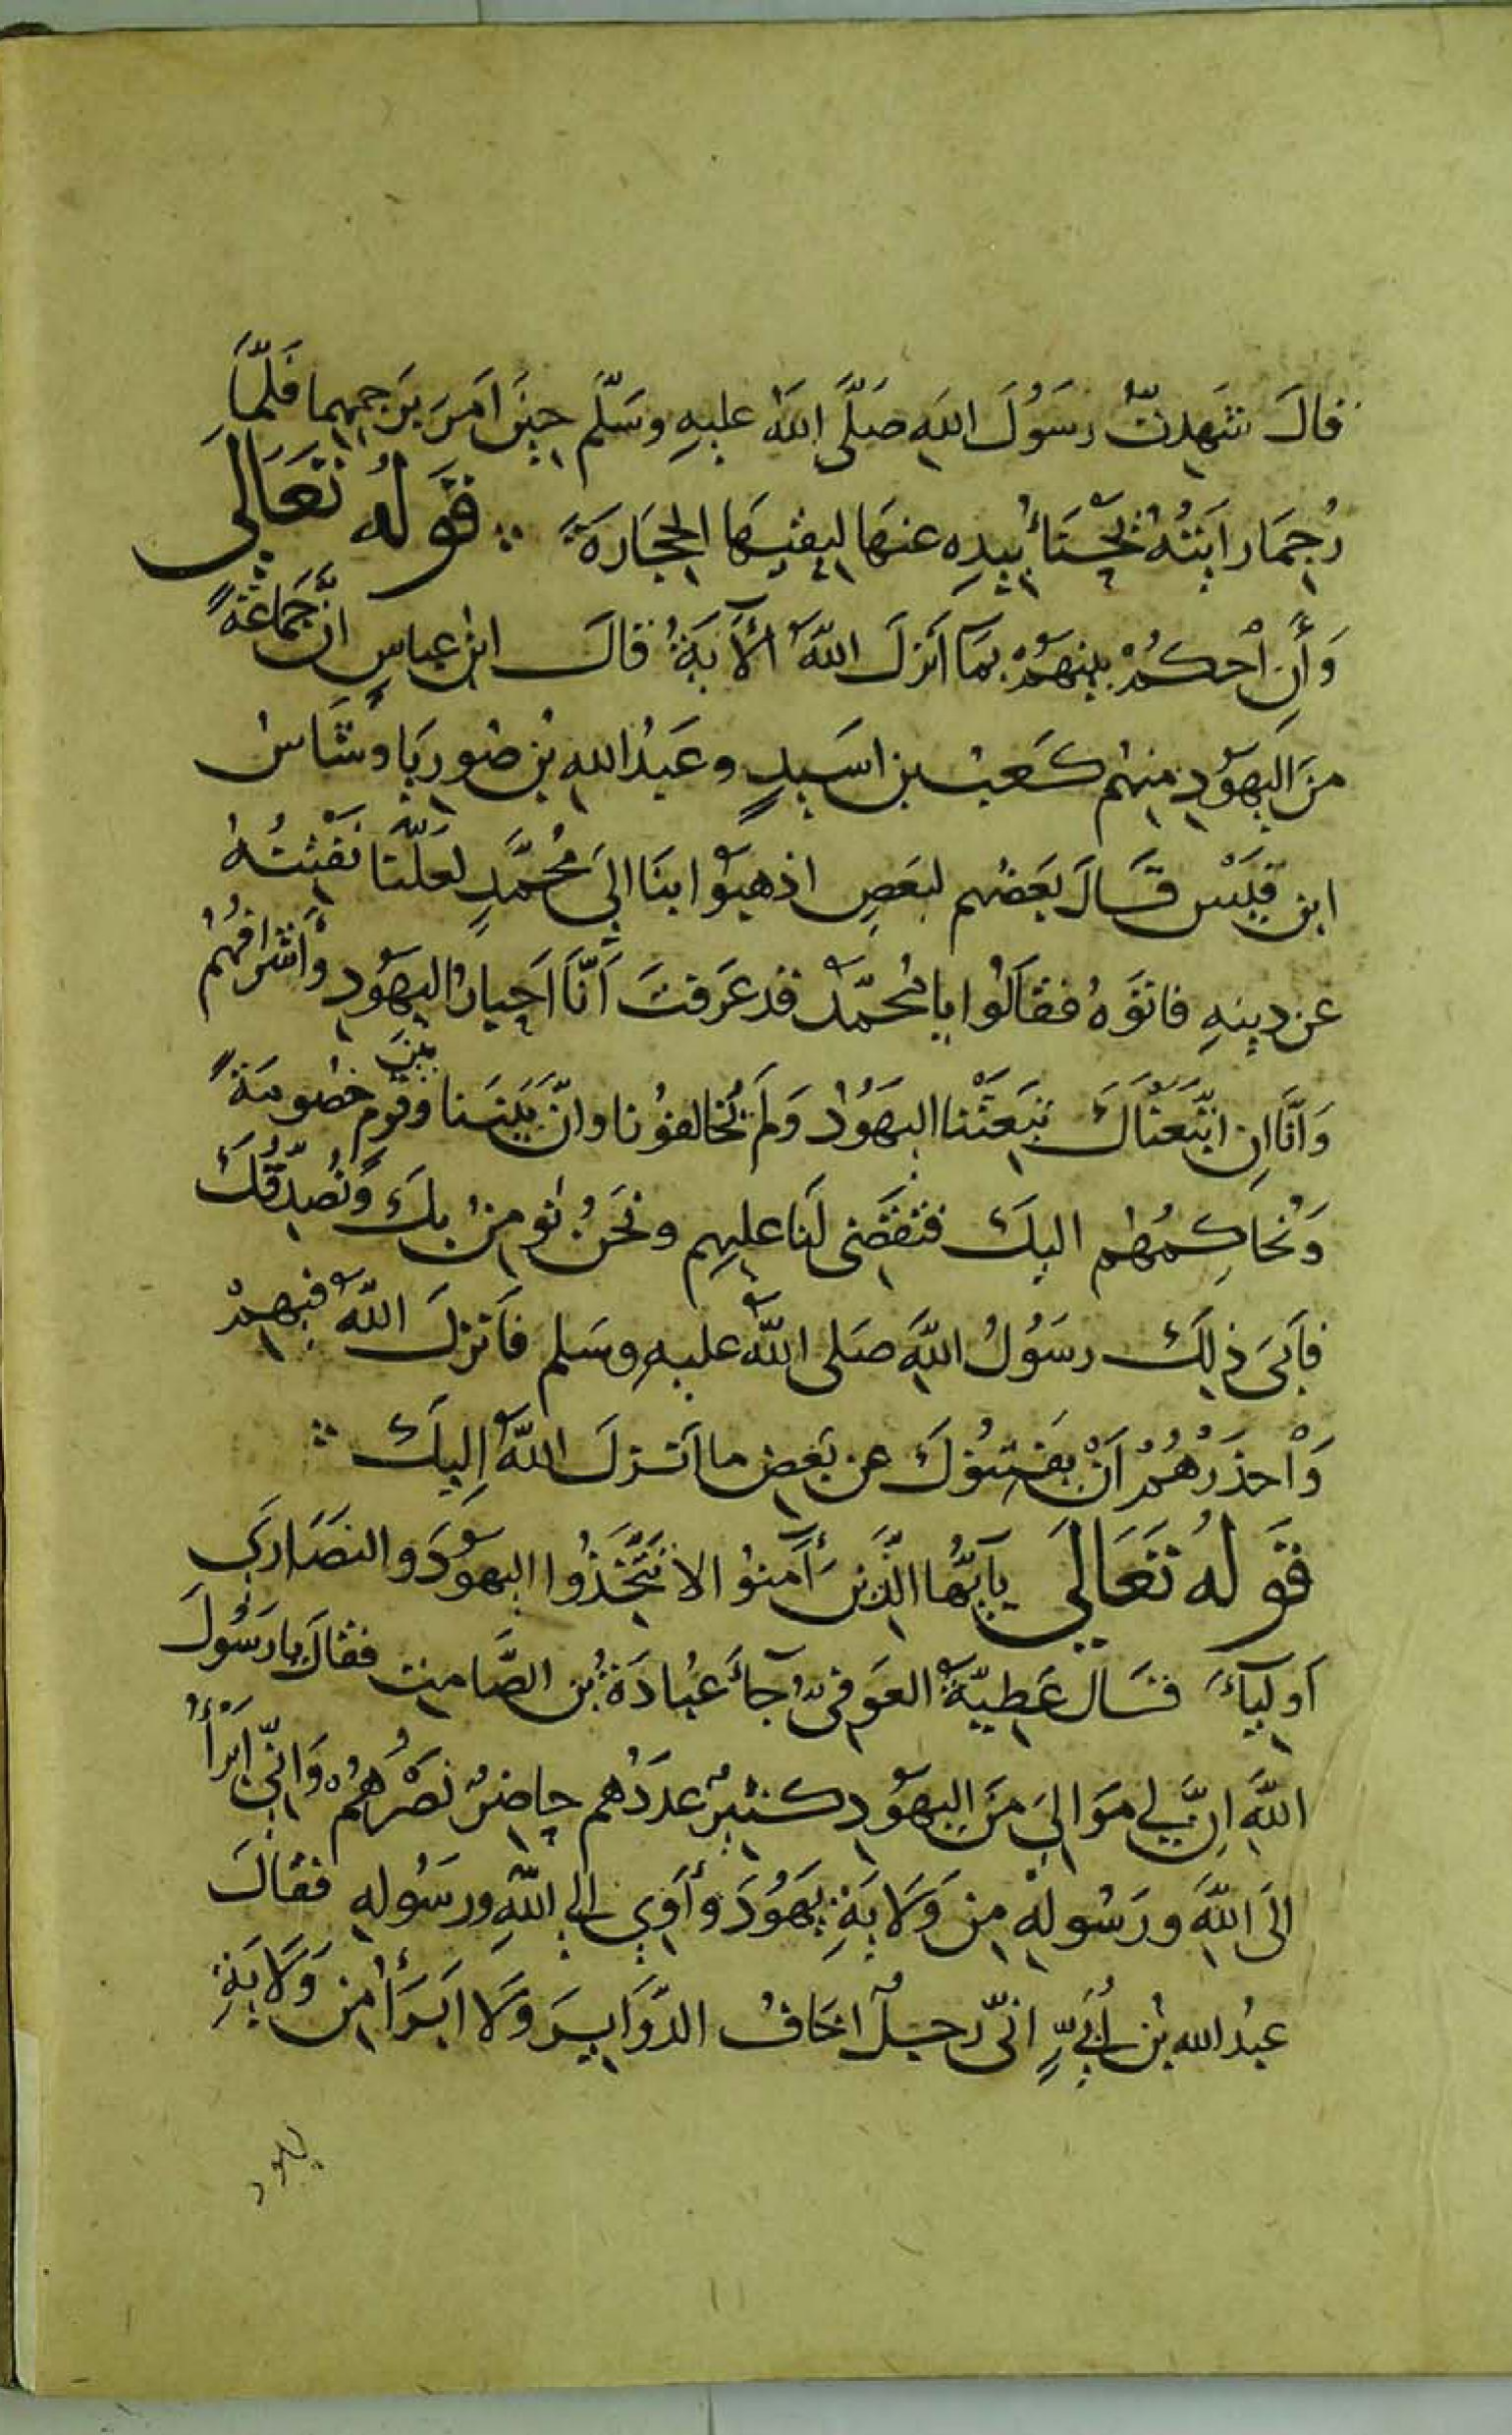 قالَ شَهِدتُّ رسَوُلَ اللهِ صَلَّى اللهُ عليهِ وسَلَّم حينَ امَرَ بَرجمِهِما فَلمَّا
رُجِمَا رايتُهُ يَجْنَأُ بيدِهِ عنهَا ليقيَهَا الحجَارَةَ ۞ قَولُهُ تَعَالَى
وَأَنِ احْكمُ بينهمْ بمَآ أنزلَ اللهُ الآيَةُ قالَ ابنُ عباسٍ انَّ جَماعَةً
منَ اليهَودِ منِهُم كَعبُ بن اسَيدٍ وعَبدُ اللهِ بنُ صُوريَا وشَاسُ
ابن قَيسْ قَالَ بَعضُهم لبَعضٍ اذهبوُا بنَا الىَ مُحمَّدٍ لعَلَّنا نَفْتِنُهُ
عن دينِهِ فاتَوَهُ فقَالَوُا يا مُحمَّدُ قد عَرَفتَ أَنَّا احَبارُ اليهَودِ وأَشرافُهُم
وَأنَّا إن اتَّبَعنَاكَ تبَعَتْنا اليهَوُدُ وَلَم يُخالفوُنا وانَّ بَيننَا وبينَ قومٍ خصُومَةً
وَنُحاكِمُهُم اليكَ فتقَضى لَنا عليهِم ونحَنُ نؤمنُ بكَ وَنُصَدِّقُكَ
فأَبىَ ذلِكَ رسَوُلُ اللهِ صَلى اللهُ عليهِ وسَلم فأنزلَ اللهُ فيهِمْ
وَاحْذرْهُمُ أَنْ يفَتنوُكَ عن بَعَضِ ما أنزلَ اللهُ إليكَ ۞
قَولُهُ تَعَالَى يآيُّها الذَّينَ أَمنوُا لا تتَّخَذُوا اليهوَدَ والنصَارَى
أوليآءَ قَالَ عَطِيَّةُ العَوفىُّ جآءَ عُبادَةُ بُن الصَّامِتِ فقالَ يا رسَوُلَ
اللهِ إنَّ لي مَوالىَ منَ اليهوَدِ كثيرٌ عدَدُهم حاضرٌ نصَرُهمُ وَانّى أَبْرَأُ
الَى اللهِ ورسَولهِ مِن وَلايَةِ يهَوُدَ وأوَي الي اللهِ ورسَوُلهِ فقالَ
عبدُ الله بنُ أُبَيٍّ انىّ رجلٌ اخَافُ الدَّوَايِرَ وَلَا ابَرأُ منِ وَلَايَةِ
يهود